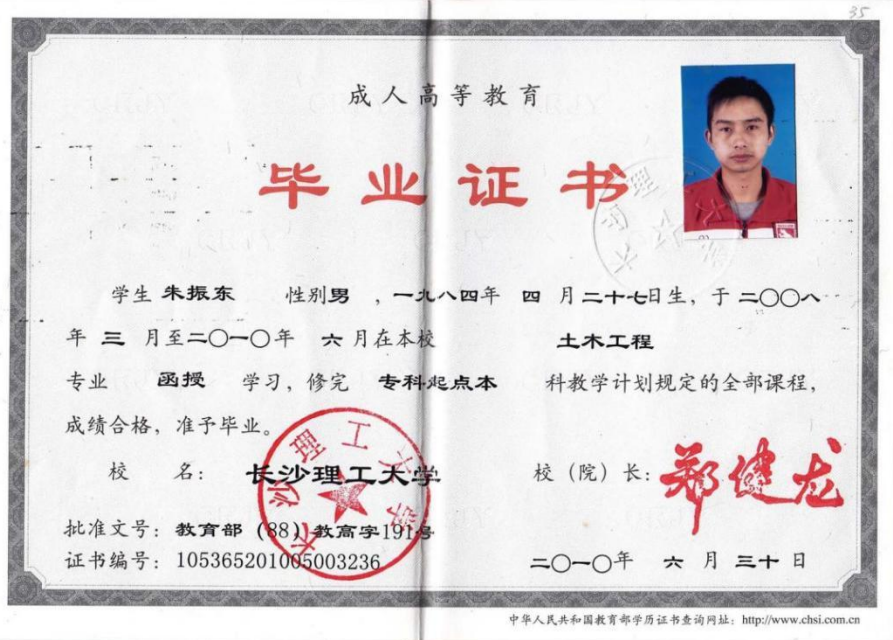 35
成人高等教育
毕业证书
学生 朱振东 性别男 ，一九八四年 四 月二十七日生，于二〇〇八
年 三 月至二〇一〇年 六 月在本校 土木工程
专业 函授 学习，修完 专科起点本 科教学计划规定的全部课程，
成绩合格，准予毕业。
校 名： 长沙理工大学 校（院）长：郑健龙
批准文号：教育部（88）教高字191号
证书编号：105365201005003236 二〇一〇年 六 月 三十 日
中华人民共和国教育部学历证书查询网址：http://www.chsi.com.cn
长沙理工大学